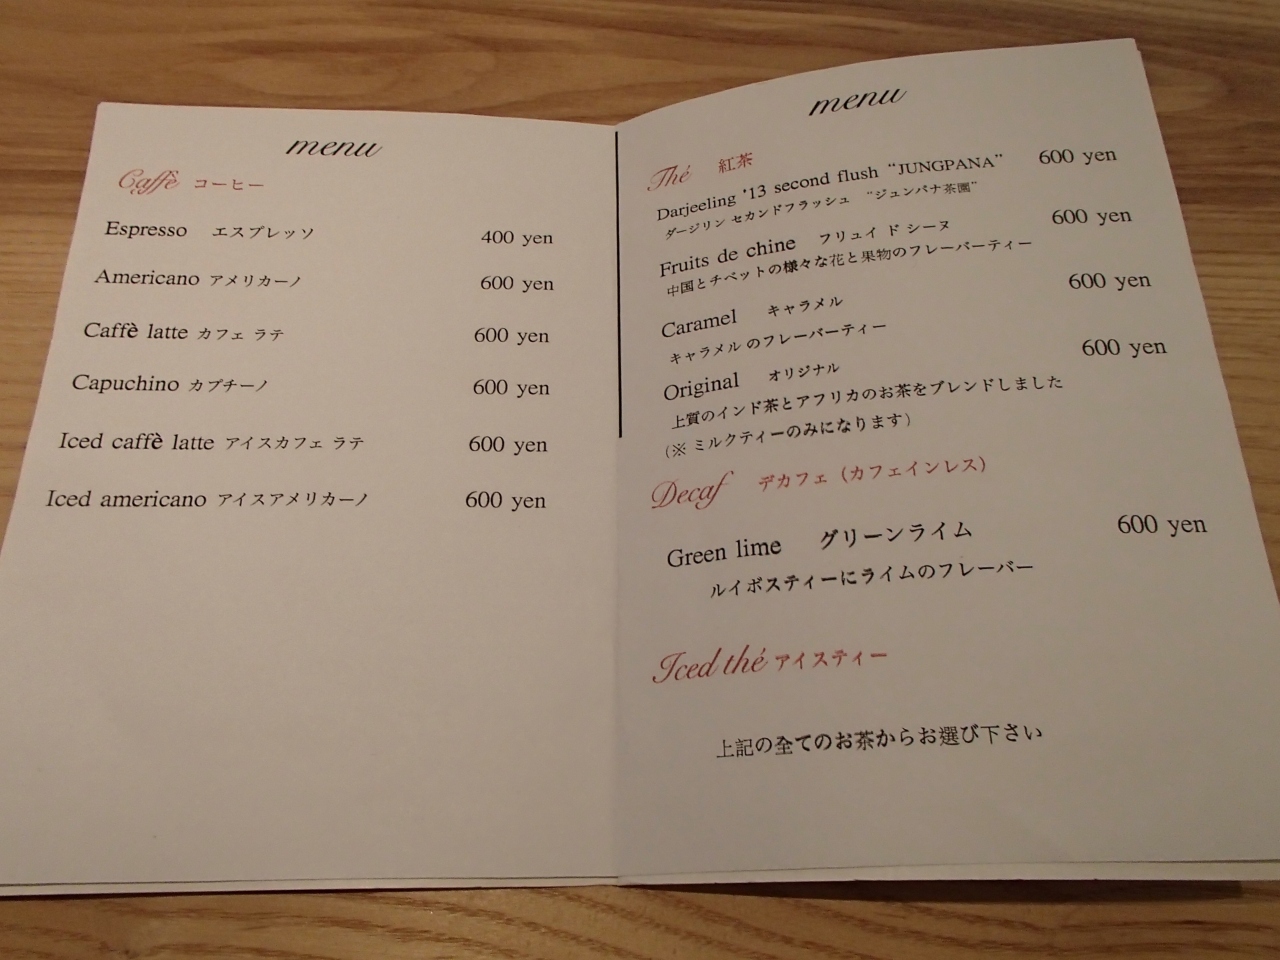 menu
Caffè コーヒー
Espresso エスプレッソ 400 yen
Americano アメリカーノ 600 yen
Caffè latte カフェ ラテ 600 yen
Capuchino カプチーノ 600 yen
Iced caffè latte アイスカフェ ラテ 600 yen
Iced americano アイスアメリカーノ 600 yen
menu
Thé 紅茶
Darjeeling '13 second flush "JUNGPANA" 600 yen
ダージリン セカンドフラッシュ "ジュンパナ茶園"
Fruits de chine フリュイ ド シーヌ 600 yen
中国とチベットの様々な花と果物のフレーバーティー
Caramel キャラメル 600 yen
キャラメル のフレーバーティー
Original オリジナル 600 yen
上質のインド茶とアフリカのお茶をブレンドしました
(※ ミルクティーのみになります)
Decaf デカフェ (カフェインレス)
Green lime グリーンライム 600 yen
ルイボスティーにライムのフレーバー
Iced thé アイスティー
上記の全てのお茶からお選び下さい